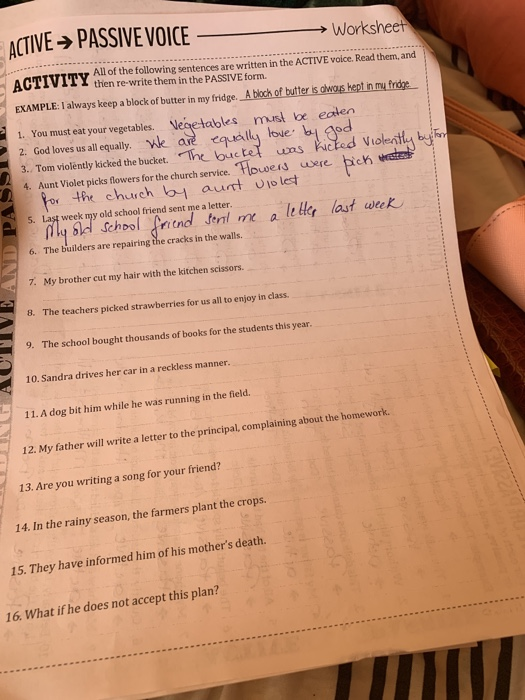 ACTIVE → PASSIVE VOICE → Worksheet
ACTIVITY All of the following sentences are written in the ACTIVE voice. Read them, and
then re-write them in the PASSIVE form.
EXAMPLE: I always keep a block of butter in my fridge. A block of butter is always kept in my fridge
1. You must eat your vegetables. Vegetables must be eaten
2. God loves us all equally. We are equally love by god
3. Tom violently kicked the bucket. The bucket was kicked violently by Tom
4. Aunt Violet picks flowers for the church service. Flowers were pick
for the church by aunt violet
5. Last week my old school friend sent me a letter.
My old school friend sent me a letter last week
6. The builders are repairing the cracks in the walls.
7. My brother cut my hair with the kitchen scissors.
8. The teachers picked strawberries for us all to enjoy in class.
9. The school bought thousands of books for the students this year.
10. Sandra drives her car in a reckless manner.
11. A dog bit him while he was running in the field.
12. My father will write a letter to the principal, complaining about the homework.
13. Are you writing a song for your friend?
14. In the rainy season, the farmers plant the crops.
15. They have informed him of his mother's death.
16. What if he does not accept this plan?